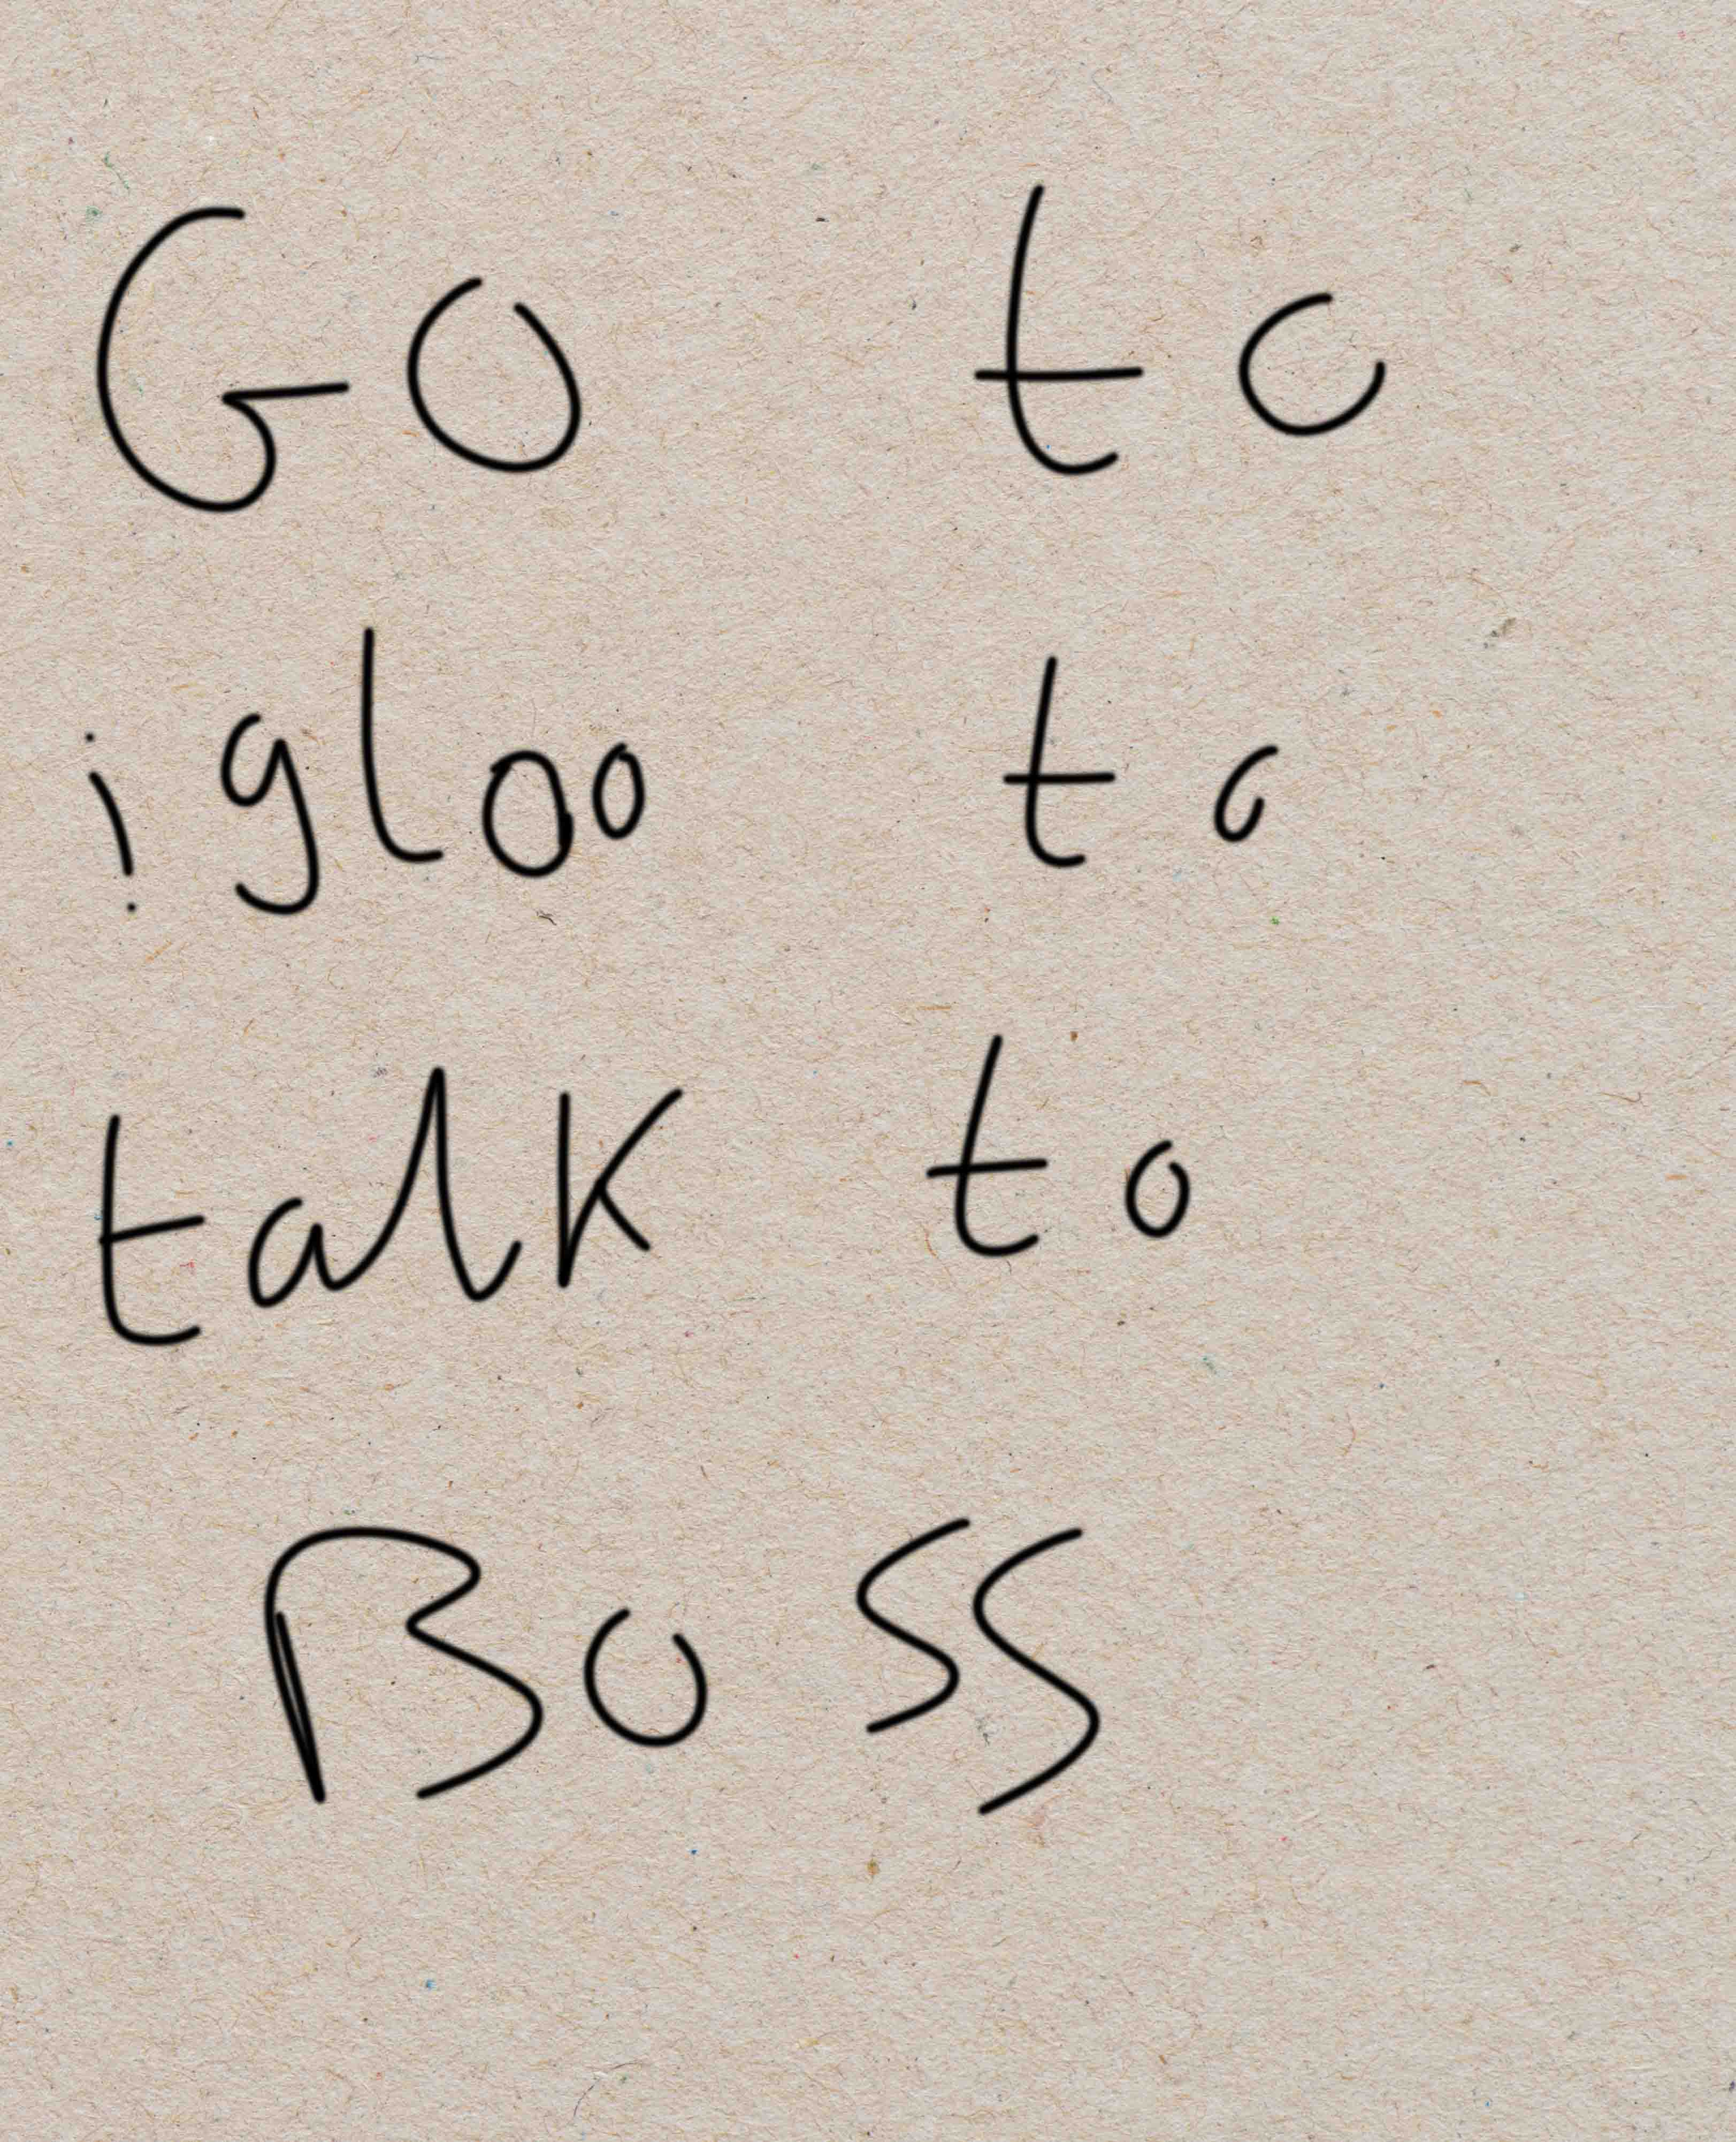 Go to
igloo to
talk to
Boss